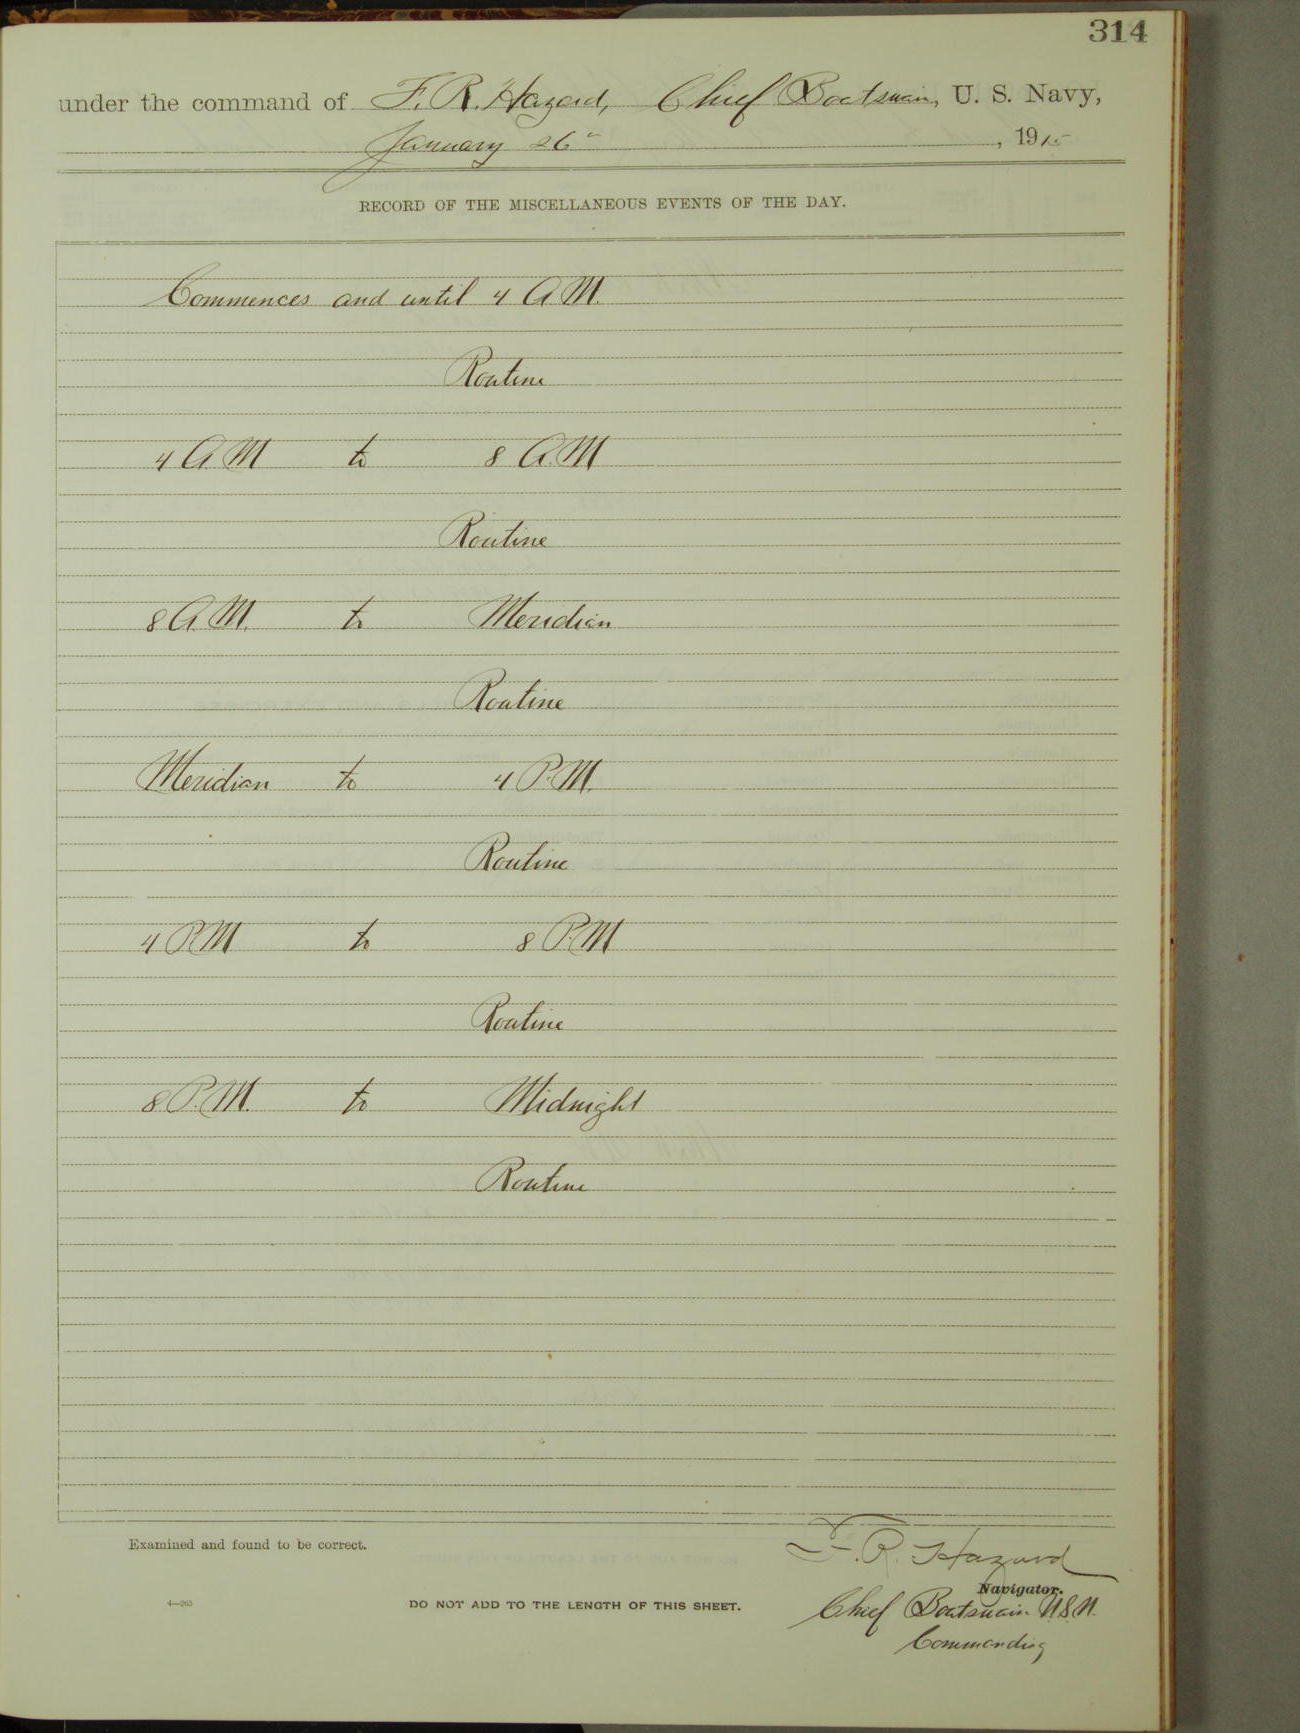 314
under the command of F. R. Hazard, Chief Boatswain, U. S. Navy,
January 26", 1915
RECORD OF THE MISCELLANEOUS EVENTS OF THE DAY.
Commences and until 4 A.M.
Routine
4 A M to 8 A.M
Routine
8 A.M. to Meridian
Routine
Meridian to 4 P.M.
Routine
4 P.M to 8 P.M
Routine
8 P.M. to Midnight
Routine
Examined and found to be correct.
F. R. Hazard
Navigator.
4—265 DO NOT ADD TO THE LENGTH OF THIS SHEET. Chief Boatswain U.S.N.
Commanding